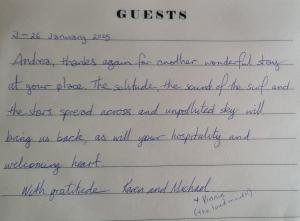 GUESTS
21-26 January 2005
Andrea, thanks again for another wonderful stay
at your place. The solitude, the sound of the surf, and
the stars spread across and unpolluted sky will
bring us back, as will your hospitality and
welcoming heart.
With gratitude Karen and Michael
+ Vinnie
(the loud mouth)